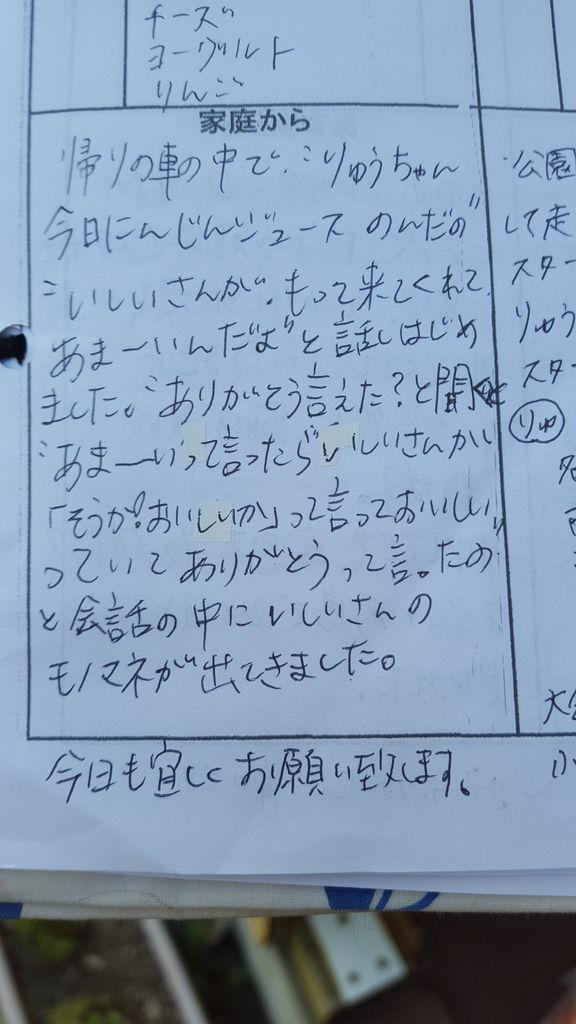 チーズ
ヨーグルト
りんご
家庭から
帰りの車の中で、"りゅうちゃん
今日にんじんジュース のんだの"
"いしいさんが、もって来てくれて
あまーいんだよ"と話しはじめ
ました。"ありがとう言えた?と聞くと
"あまーいって言ったら"いしいさんがい
「そうか!おいしいか」って言っておいしい
っていてありがとうって言ったの"
と会話の中にいしいさんの
モノマネが出てきました。
今日も宜しくお願い致します。
公園
して走
スター
りゅう
スタ
りゅ